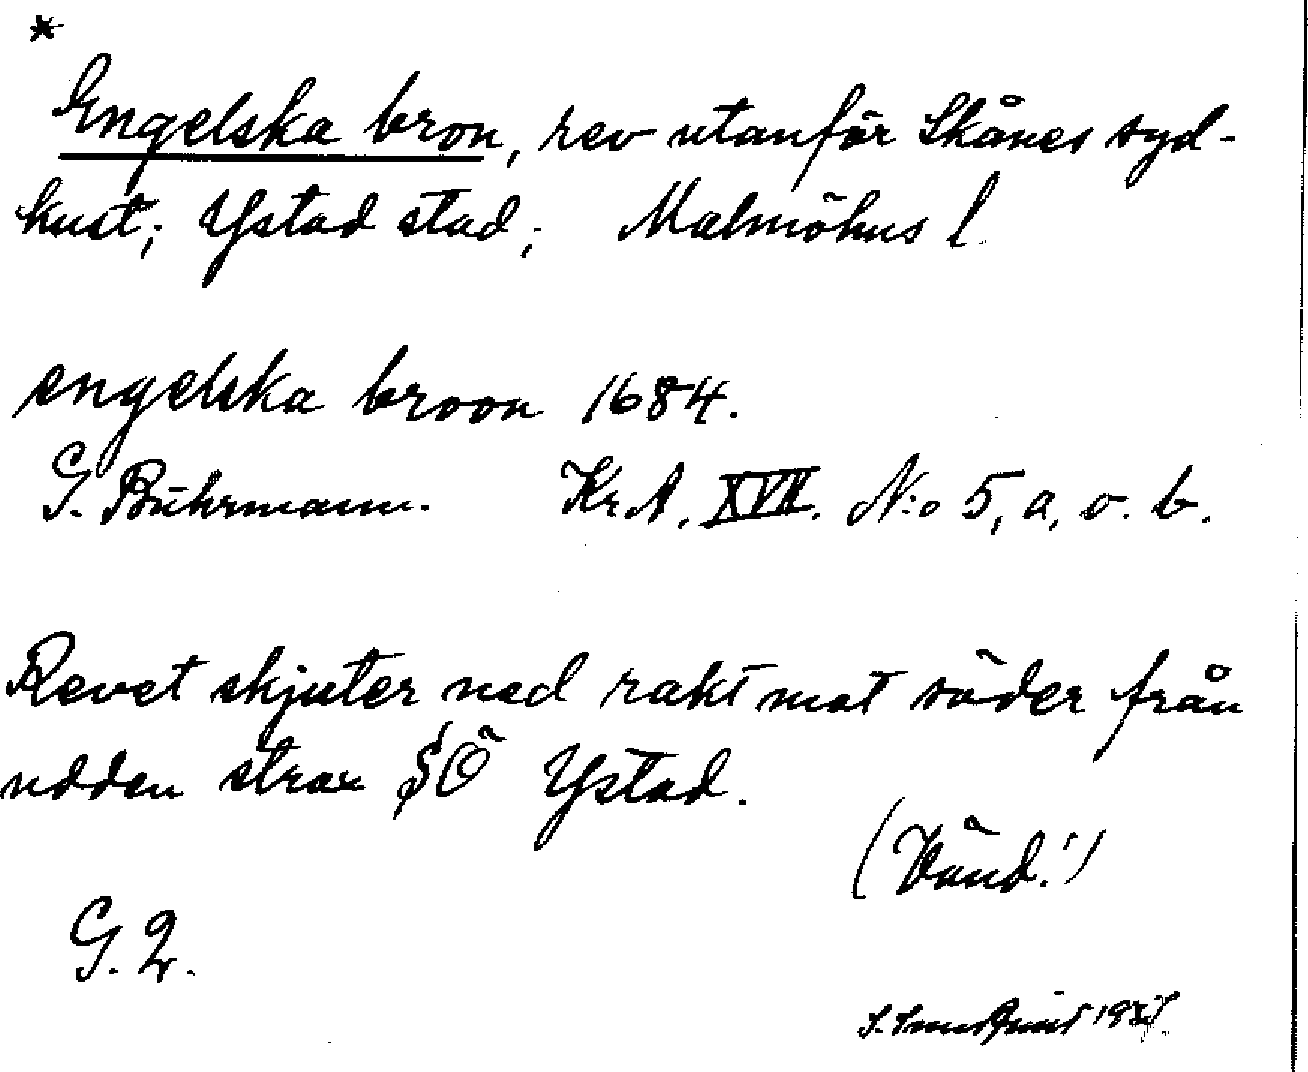 *
Engelska bron, rev utanför Skånes syd-
kust; Ystad stad; Malmöhus l.
engelska broon 1684.
G. Buhrmann. Kr. A. XVII. N:o 5, a, o. b.
Revet skjuter ned rakt mot söder från
udden strax SÖ Ystad.
(Vänd!)
G. 2.
S.